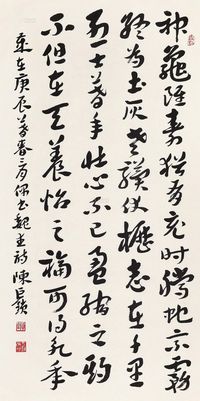 神龜雖壽猶有竟時騰蛇乘霧
終為土灰老驥伏櫪志在千里
烈士暮年壯心不已盈縮之期
不但在天養怡之福可得永年
歲在庚辰暮春書魏武詩陳巨鎖